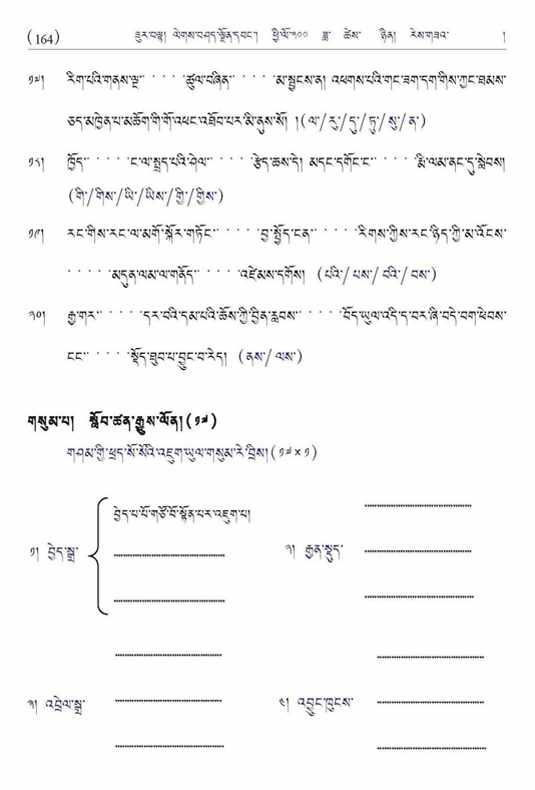 (164) ཟུར་བལྟ། ལེགས་བཤད་ལྗོན་དབང་། ཕྱི་ལོ་༢༠༠ ཟླ་ ཚེས་ ཉིན། རེས་གཟའ་ །
༡༧། རིག་པའི་གནས་ལྔ་ ་ ་ ་ ་ཚུལ་བཞིན་ ་ ་ ་ ་མ་སྦྱངས་ན། འཕགས་པའི་གང་ཟག་དག་གིས་ཀྱང་ཐམས་
ཅད་མཁྱེན་པ་མཆོག་གི་གོ་འཕང་འཐོབ་པར་མི་ནུས་སོ། །(ལ་/རུ་/དུ་/ཏུ་/སུ་/ན་)
༡༨། ཁྱོད་ ་ ་ ་ ་ང་ལ་སྤྲད་པའི་ཤེལ་ ་ ་ ་ ་རྩེད་ཆས་དེ། མདང་དགོང་ང་ ་ ་ ་ ་རྨི་ལམ་ནང་དུ་སླེབས།
(གི་/གིས་/ཡི་/ཡིས་/གྱི་/གྱིས་)
༡༩། རང་གིས་རང་ལ་མགོ་སྐོར་གཏོང་ ་ ་ ་ ་བྱ་སྤྱོད་ངན་ ་ ་ ་ ་རིགས་ཀྱིས་རང་ཉིད་ཀྱི་མ་འོངས་
་ ་ ་ ་ ་མདུན་ལམ་ལ་གནོད་ ་ ་ ་ ་འཛེམས་དགོས། (པའི་/ པས་/ བའི་/ བས་)
༢༠། རྒྱ་གར་ ་ ་ ་ ་དར་བའི་དམ་པའི་ཆོས་ཀྱི་བྱིན་རླབས་ ་ ་ ་ ་བོད་ཡུལ་འདི་ད་བར་ཞི་བདེ་བག་ཕེབས་
ངང་ ་ ་ ་ ་སྡོད་ཐུབ་པ་བྱུང་བ་རེད། (ནས་/ ལས་)
གསུམ་པ། སློབ་ཚན་རྒྱུས་ལོན། (༡༧)
གཤམ་གྱི་ཕྲད་སོ་སོའི་འཇུག་ཡུལ་གསུམ་རེ་བྲིས། (༡༧ × ༡)
༡། བྱེད་སྒྲ་
བྱེད་པ་པོ་གཙོ་བོ་སྟོན་པར་འཇུག་པ།
༢། རྒྱན་སྡུད་
༣། འབྲེལ་སྒྲ་
༤། འབྱུང་ཁུངས་